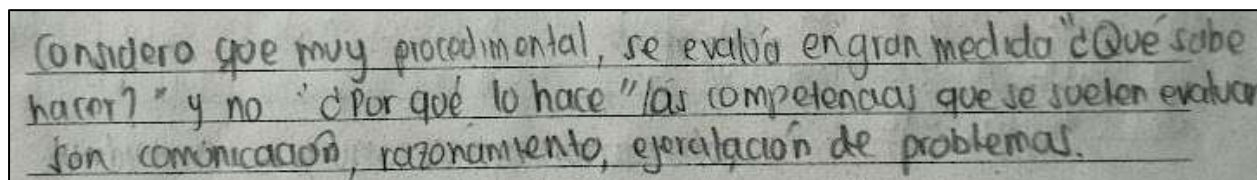 Considero que muy procedimental, se evalúa en gran medida "¿Qué sabe
hacer?" y no "¿Por qué lo hace" las competencias que se suelen evaluar
son comunicación, razonamiento, ejercitación de problemas.